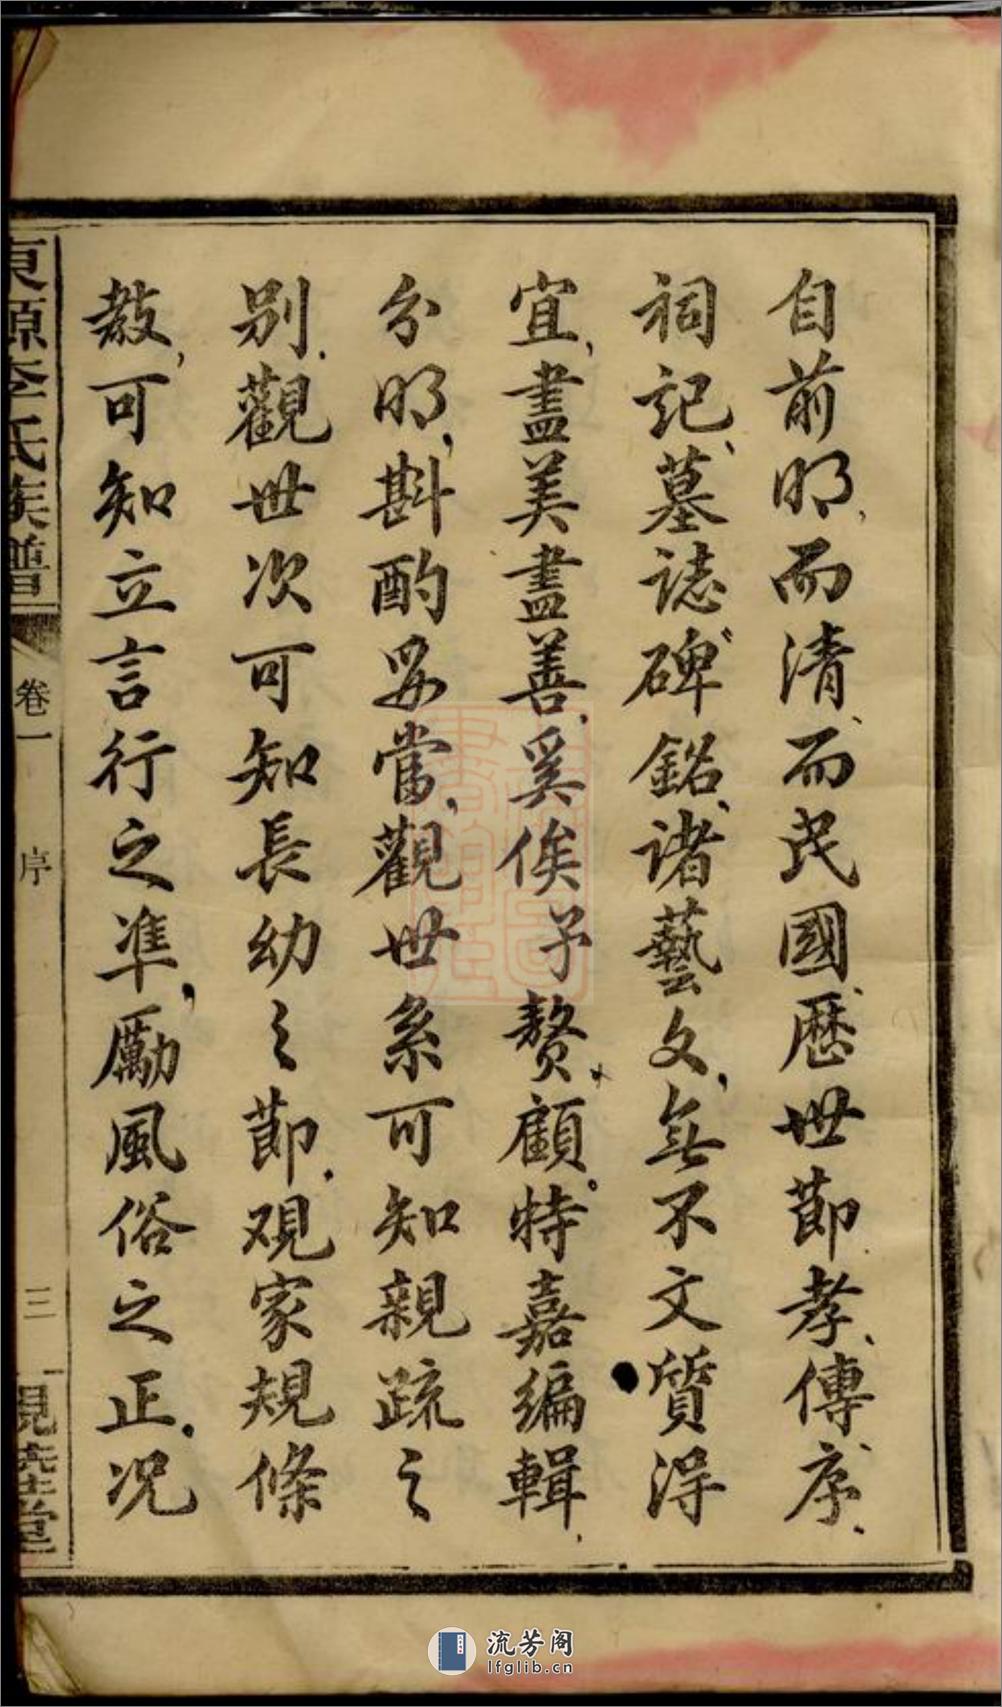 自前明、而清、而民國、歷世節孝、傳、序、
祠記、墓誌、碑銘、諸藝文、無不文質得
宜、盡美盡善、奚俟予贅顧。特嘉編輯、
分明、斟酌妥當、觀世系可知親疏之
別、觀世次可知長幼之節、观家規條
教、可知立言行之準、勵風俗之正、况
東源李氏族譜
卷一
序
三
堂
流芳阁
lfglib.cn